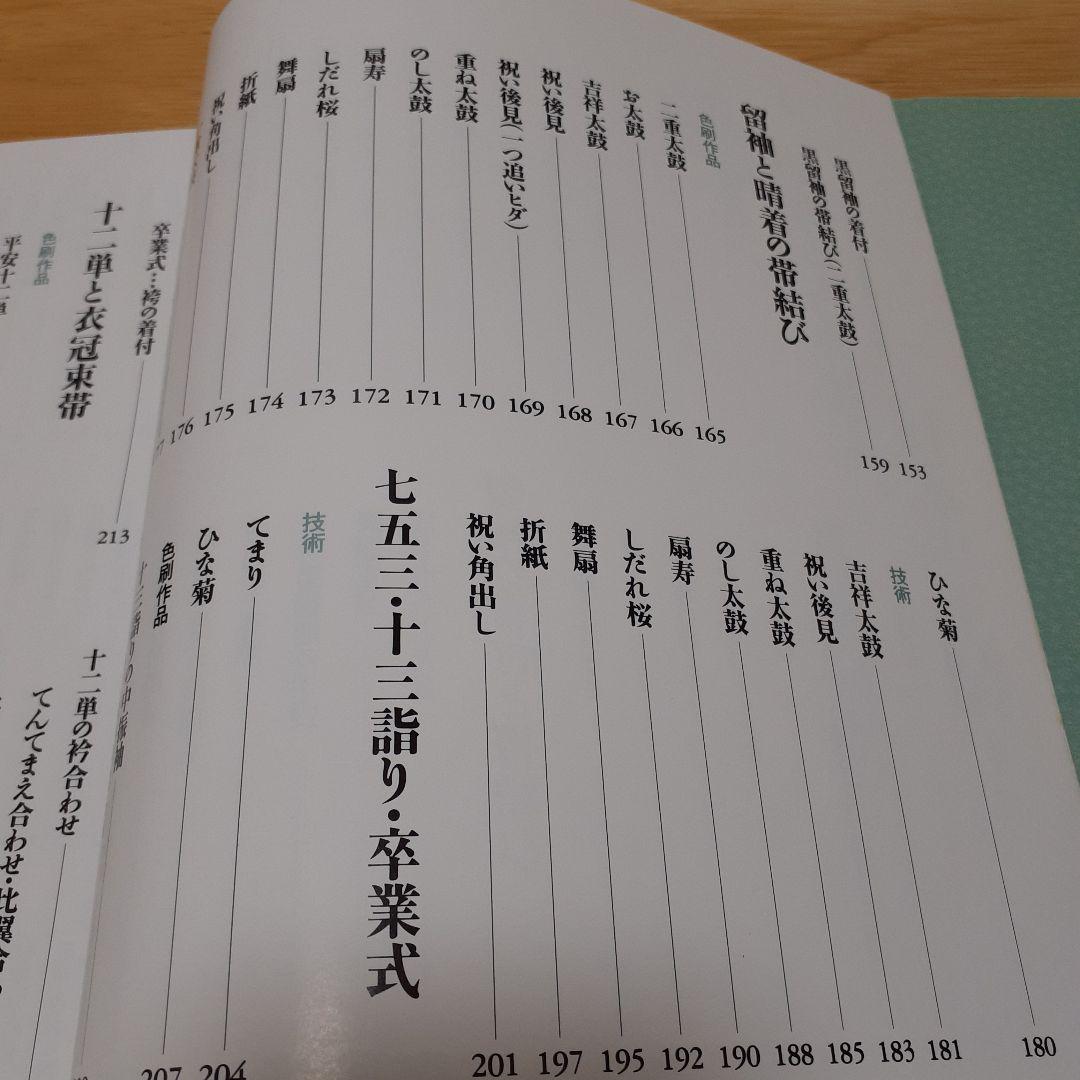 黒留袖の着付 153
黒留袖の帯結び(二重太鼓) 159
留袖と晴着の帯結び
色刷作品
二重太鼓 165
お太鼓 166
吉祥太鼓 167
祝い後見 168
祝い後見(一つ追いヒダ) 169
重ね太鼓 170
のし太鼓 171
扇寿 172
しだれ桜 173
舞扇 174
折紙 175
祝い角出し 176
ひな菊 180
技術
吉祥太鼓 181
祝い後見 183
重ね太鼓 185
のし太鼓 188
扇寿 190
しだれ桜 192
舞扇 195
折紙 197
祝い角出し 201
七五三・十三詣り・卒業式
技術
てまり 204
ひな菊 207
色刷作品
十三詣りの中振袖
卒業式…袴の着付 213
十二単と衣冠束帯
色刷作品
平安十二単
十二単の衿合わせ
てんてまえ合わせ・比翼合